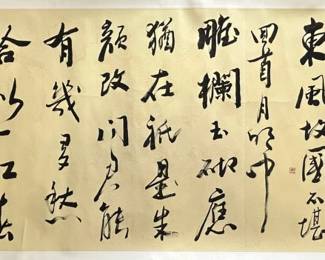 東風故國不堪
回首月明中
雕欄玉砌應
猶在祇是朱
顏改問君能
有幾多愁
恰似一江春